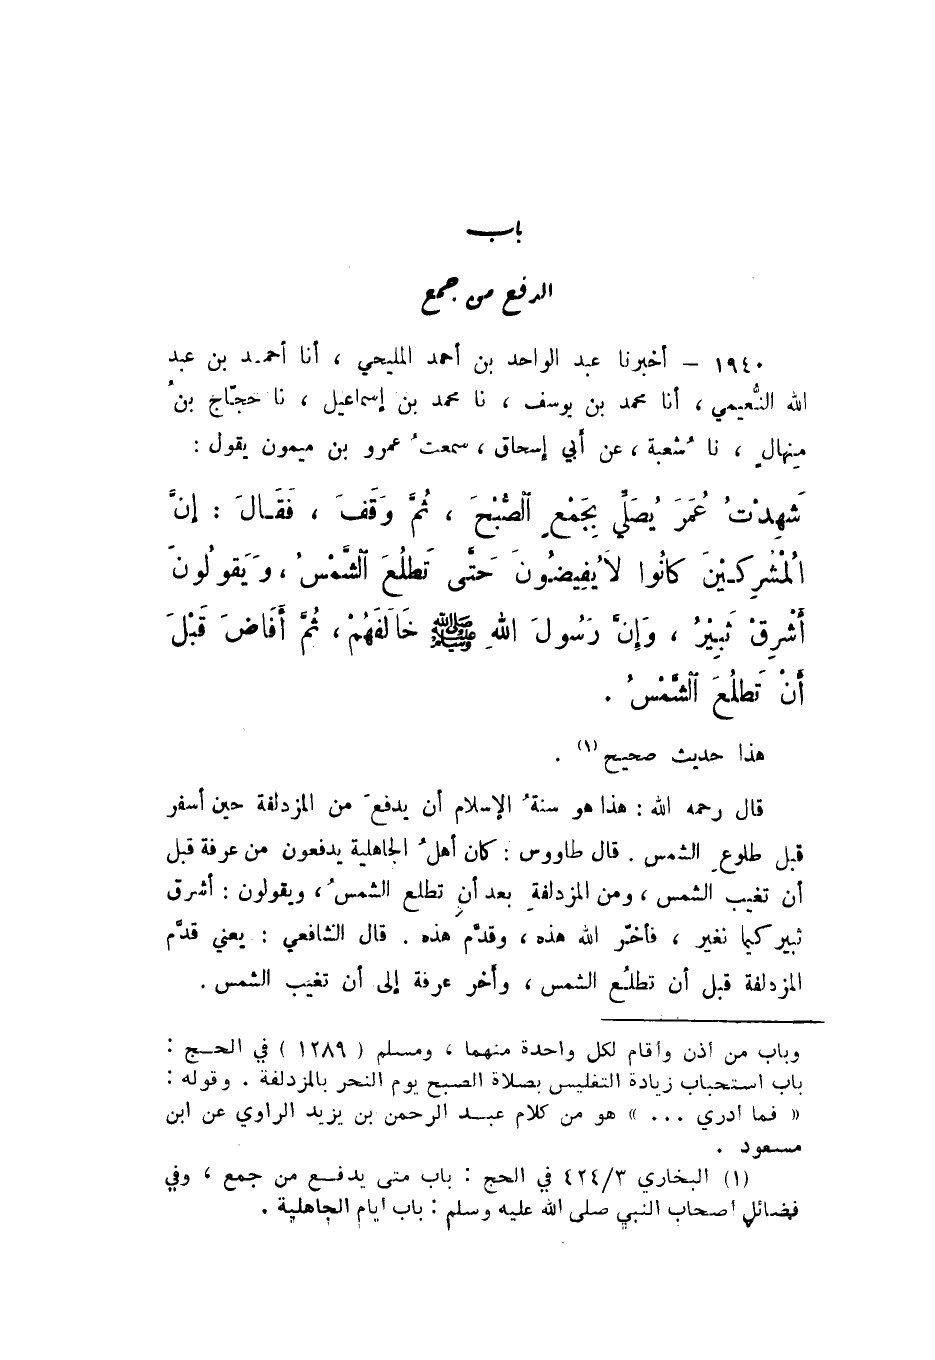 باب
الدفع من جمع
١٩٤٠ – أخبرنا عبد الواحد بن أحمد المليحي ، أنا أحمد بن عبد
الله النُّعيمي ، أنا محمد بن يوسف ، نا محمد بن إسماعيل ، نا حجّاج بنُ
مِنهالٍ ، نا شُعبة ، عن أبي إسحاق ، سمعتُ عمرو بن ميمون يقول :
شَهِدْتُ عُمَرَ يُصَلِّي بِجَمْعٍ ٱلصُّبْحَ ، ثُمَّ وَقَفَ ، فَقَالَ : إنَّ
ٱلْمُشْرِكِيْنَ كَانُوا لَا يُفِيضُونَ حَتَّى تَطلُعَ ٱلشَّمْسُ ، وَيَقولُونَ
أَشْرِقْ ثَبِيْرُ ، وَإِنَّ رَسُولَ اللهِ ﷺ خَالَفَهُمْ ، ثُمَّ أَفَاضَ قَبْلَ
أَنْ تَطلُعَ ٱلشَّمْسُ .
هذا حديث صحيح (١) .
قال رحمه الله : هذا هو سنةُ الإسلام أن يدفعَ من المزدلفة حين أسفر
قبل طلوعِ الشمس . قال طاووس : كان أهلُ الجاهلية يدفعون من عرفة قبل
أن تغيب الشمس ، ومن المزدلفةِ بعد أن تطلع الشمسُ ، ويقولون : أشرِق
ثبير كيما نغير ، فأخّر الله هذه ، وقدَّم هذه . قال الشافعي : يعني قدَّم
المزدلفة قبل أن تطلُع الشمس ، وأخر عرفة إلى أن تغيب الشمس .
وباب من أذن وأقام لكل واحدة منهما ، ومسلم ( ١٢٨٩ ) في الحج :
باب استحباب زيادة التغليس بصلاة الصبح يوم النحر بالمزدلفة . وقوله :
« فما أدري ... » هو من كلام عبد الرحمن بن يزيد الراوي عن ابن
مسعود .
(١) البخاري ٤٢٤/٣ في الحج : باب متى يدفع من جمع ، وفي
فضائل أصحاب النبي صلى الله عليه وسلم : باب أيام الجاهلية .